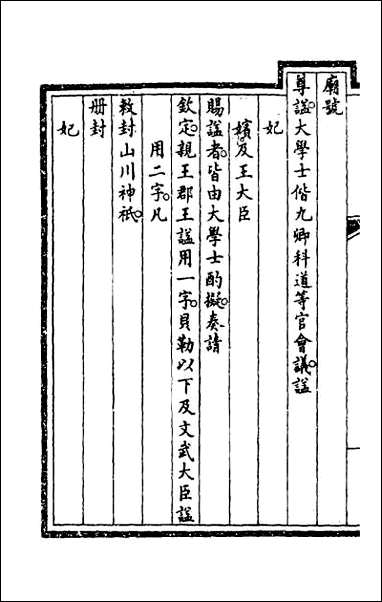 廟號
尊諡。大學士偕九卿科道等官會議。諡
妃
嬪。及王大臣
賜諡者。皆由大學士酌擬。奏請
欽定。親王郡王諡用一字。貝勒以下及文武大臣諡
用二字。凡
敕封山川神祇。
册封
妃